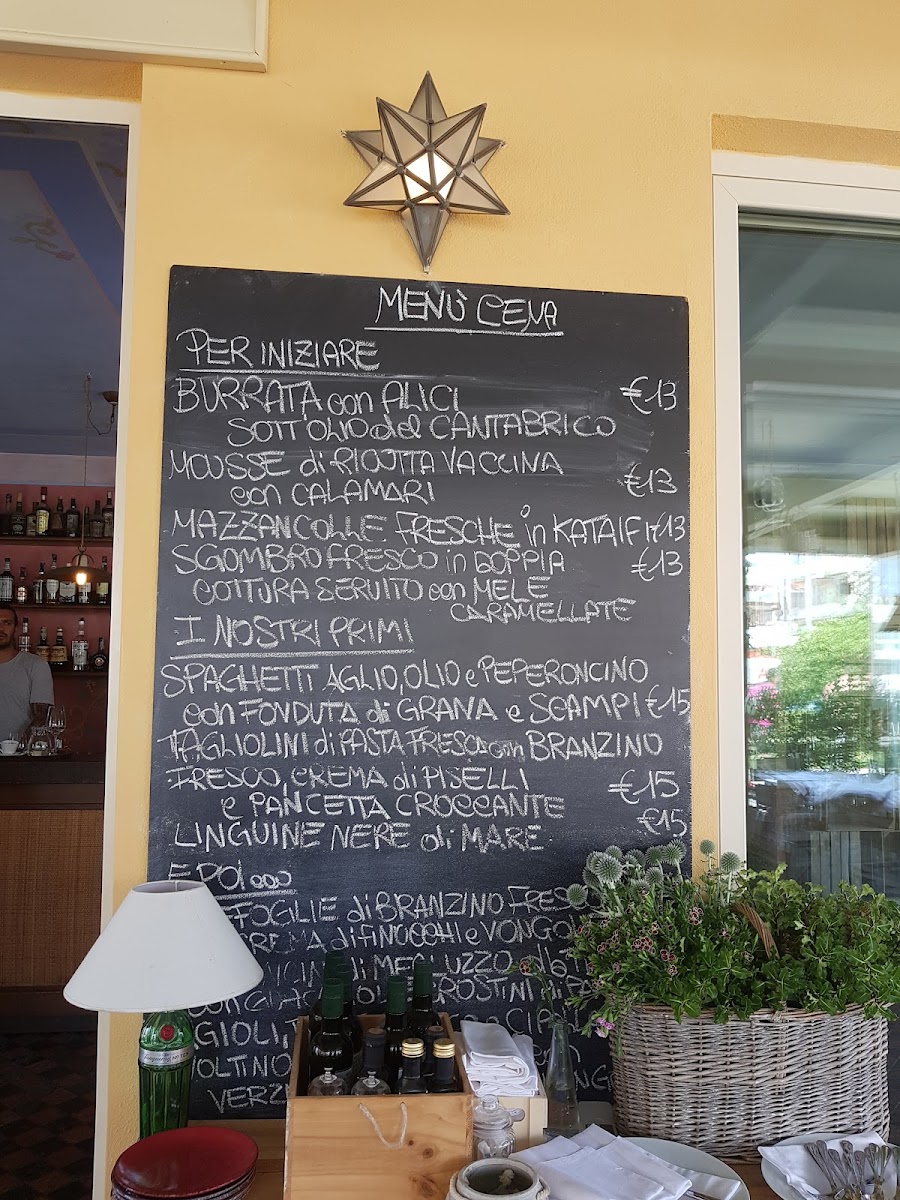 MENÙ CENA
PER INIZIARE
BURRATA con ALICI €13
SOTT'OLIO del CANTABRICO
MOUSSE di RICOTTA VACCINA
con CALAMARI €13
MAZZANCOLLE FRESCHE in KATAIFI €13
SGOMBRO FRESCO in DOPPIA €13
COTTURA SERVITO con MELE
CARAMELLATE
I NOSTRI PRIMI
SPAGHETTI AGLIO, OLIO e PEPERONCINO
con FONDUTA di GRANA e SCAMPI €15
TAGLIOLINI di PASTA FRESCA con BRANZINO
FRESCO, CREMA di PISELLI €15
e PANCETTA CROCCANTE
LINGUINE NERE di MARE €15
E POI ...
di BRANZINO
di FINOCCHI e
di
con